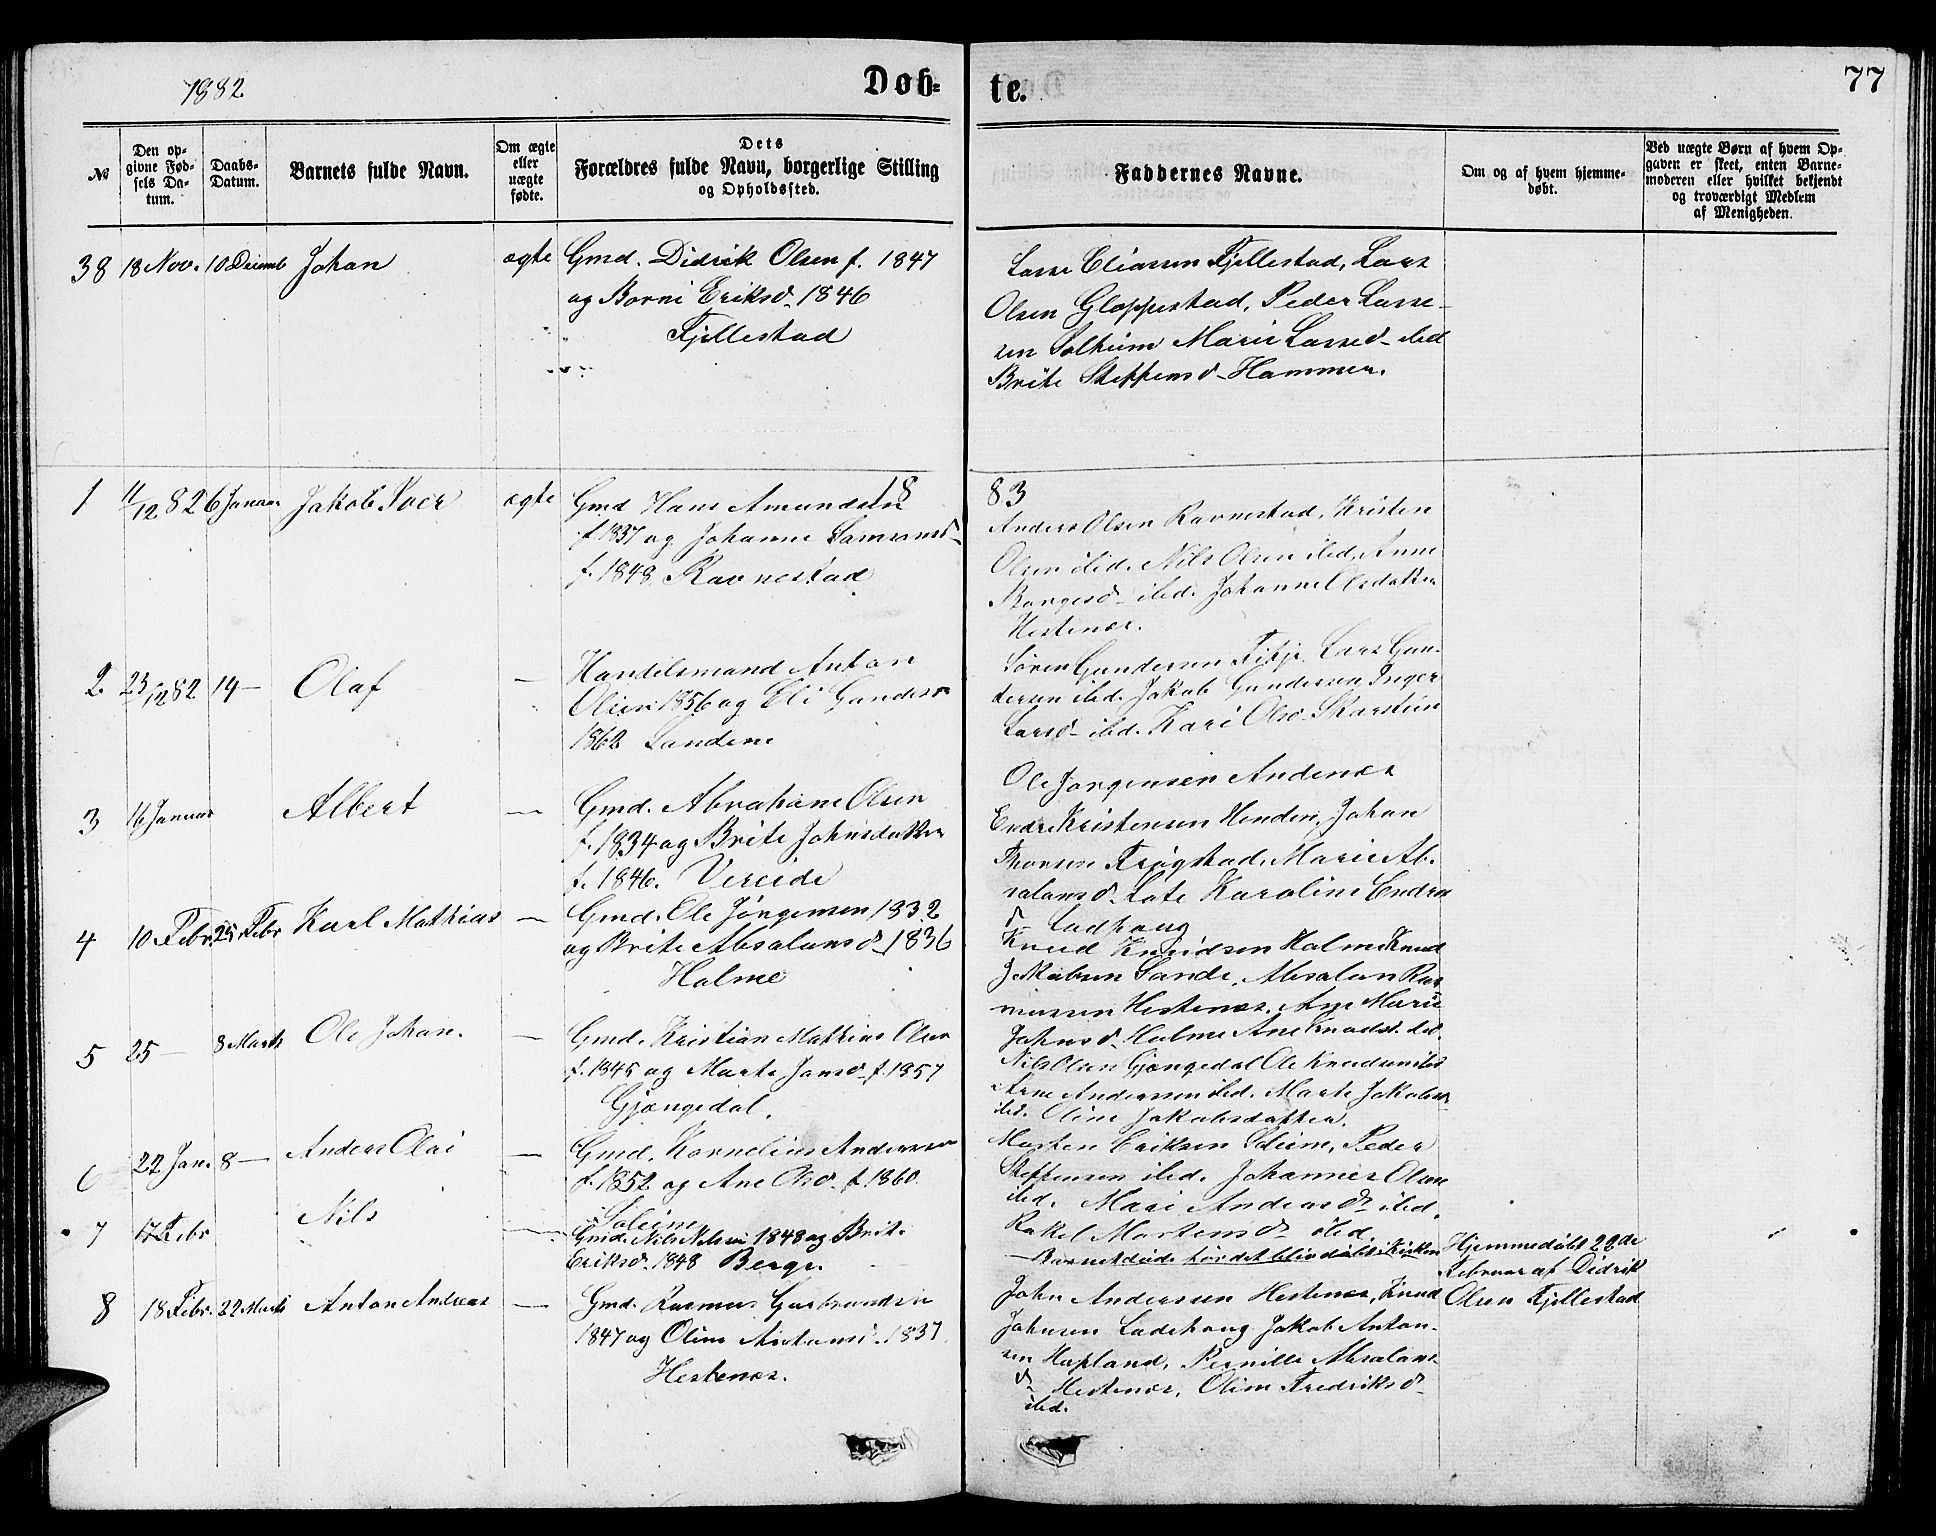 1882
Døb=
te.
77
№
Den op-
givne Fød-
sels Da-
tum.
Daabs-
Datum.
Barnets fulde Navn.
Om ægte
eller
uægte
fødte.
Dets
Forældres fulde Navn, borgerlige Stilling
og Opholdssted.
Faddernes Navne.
Om og af hvem hjemme-
døbt.
Ved uægte Børn af hvem Op-
gaven er skeet, enten Barne-
moderen eller hvilket bekjendt
og troværdigt Medlem
af Menigheden.
38 18 Nov. 10 Decemb Johan ægte
Gmd. Didrik Olsen f. 1847
og Borni Eriksd. 1846
Fjellestad
Lasse Eliassen Fjellestad, Lars
Olsen Gloppestad, Peder Lasse-
sen Solheim Marie Lassed- ibid
Brite Steffensd- Hammer.
1883
1 11/12 82 6 Januar Jakob Iver ægte
Gmd Hans Amundsen
f 1837 og Johanne Samsonsd-
f. 1848 Ravnestad
Anders Olsen Ravnestad, Kristen
Olsen ibid. Nils Olsen ibid, Anne
ibid. Johanne Olsdatter
Hestenes.
2. 23/12 82 14 — Olaf —
Handelsmand Anton
Olsen 1856 og Eli Gundersd
1862 Sandene
Søren Gundersen Fitje. Lars Gun-
dersen ibid. Jakob Gundersen Inger
Larsd- ibid. Kari Olsd- Skarstein
3 16 Januar Albert —
Gmd. Abraham Olsen
f. 1834 og Brite Johnsdatter
f. 1846. Vereide
Ole Jørgensen Andenes
Endre Kristensen Henden, Johan
Thomsen Frøgstad, Marie Ab-
salonsd. Lote Karoline Endre
d- Ladhaug
4 10 Febr. 25 Febr Karl Mathias —
Gmd. Ole Jørgensen 1832
og Brite Absalonsd- 1836
Holme
Knud Knudsen Holme Knud
Jakobsen Sande, Absalon Ras
mussen Hestenes. Ane Marie
Johnsd- Holme Ane Knudsd. ibd.
5 25 — 8 Marts Ole Johan. —
Gmd. Kristian Mathias Olsen
f. 1845 og Marte Jansd- f. 1857
Gjengedal.
Nils Olsen Gjengedal Ole Knudsen ibd
Arne Andersen ibid. Marte Jakobsd
ibd. Oline Jakobsdatter.
6 22 Jan. 8 — Anders Olai —
Gmd. Kornelius Andersen
f. 1852 og Ane Olsd. f. 1860.
Soleime
Morten Eriksen Soleim, Peder
Steffensen ibid. Johannes Olsen
ibd. Mari Andersd- ibid.
Rakel Mortensd- ibid
7 17 Febr Nils —
Gmd. Nils Nilsen 1848 og Brite
Eriksd- 1848 Berge.
— Barnet døde før det blev døbt i Kirken
Hjemmedøbt 22de
Februar af Didrik
Olsen Fjellestad
8 18 Febr. 22 Marts Anton Andreas —
Gmd. Rasmus Gerbrandsen
1847 og Oline Antonsd. 1837
Hestenes.
John Andersen Hestenes, Knud
Johnsen Ladehaug Jakob Anton-
sen Hopland, Pernille Absalons
d- Hestenes, Oline Fredriksd-
ibid.